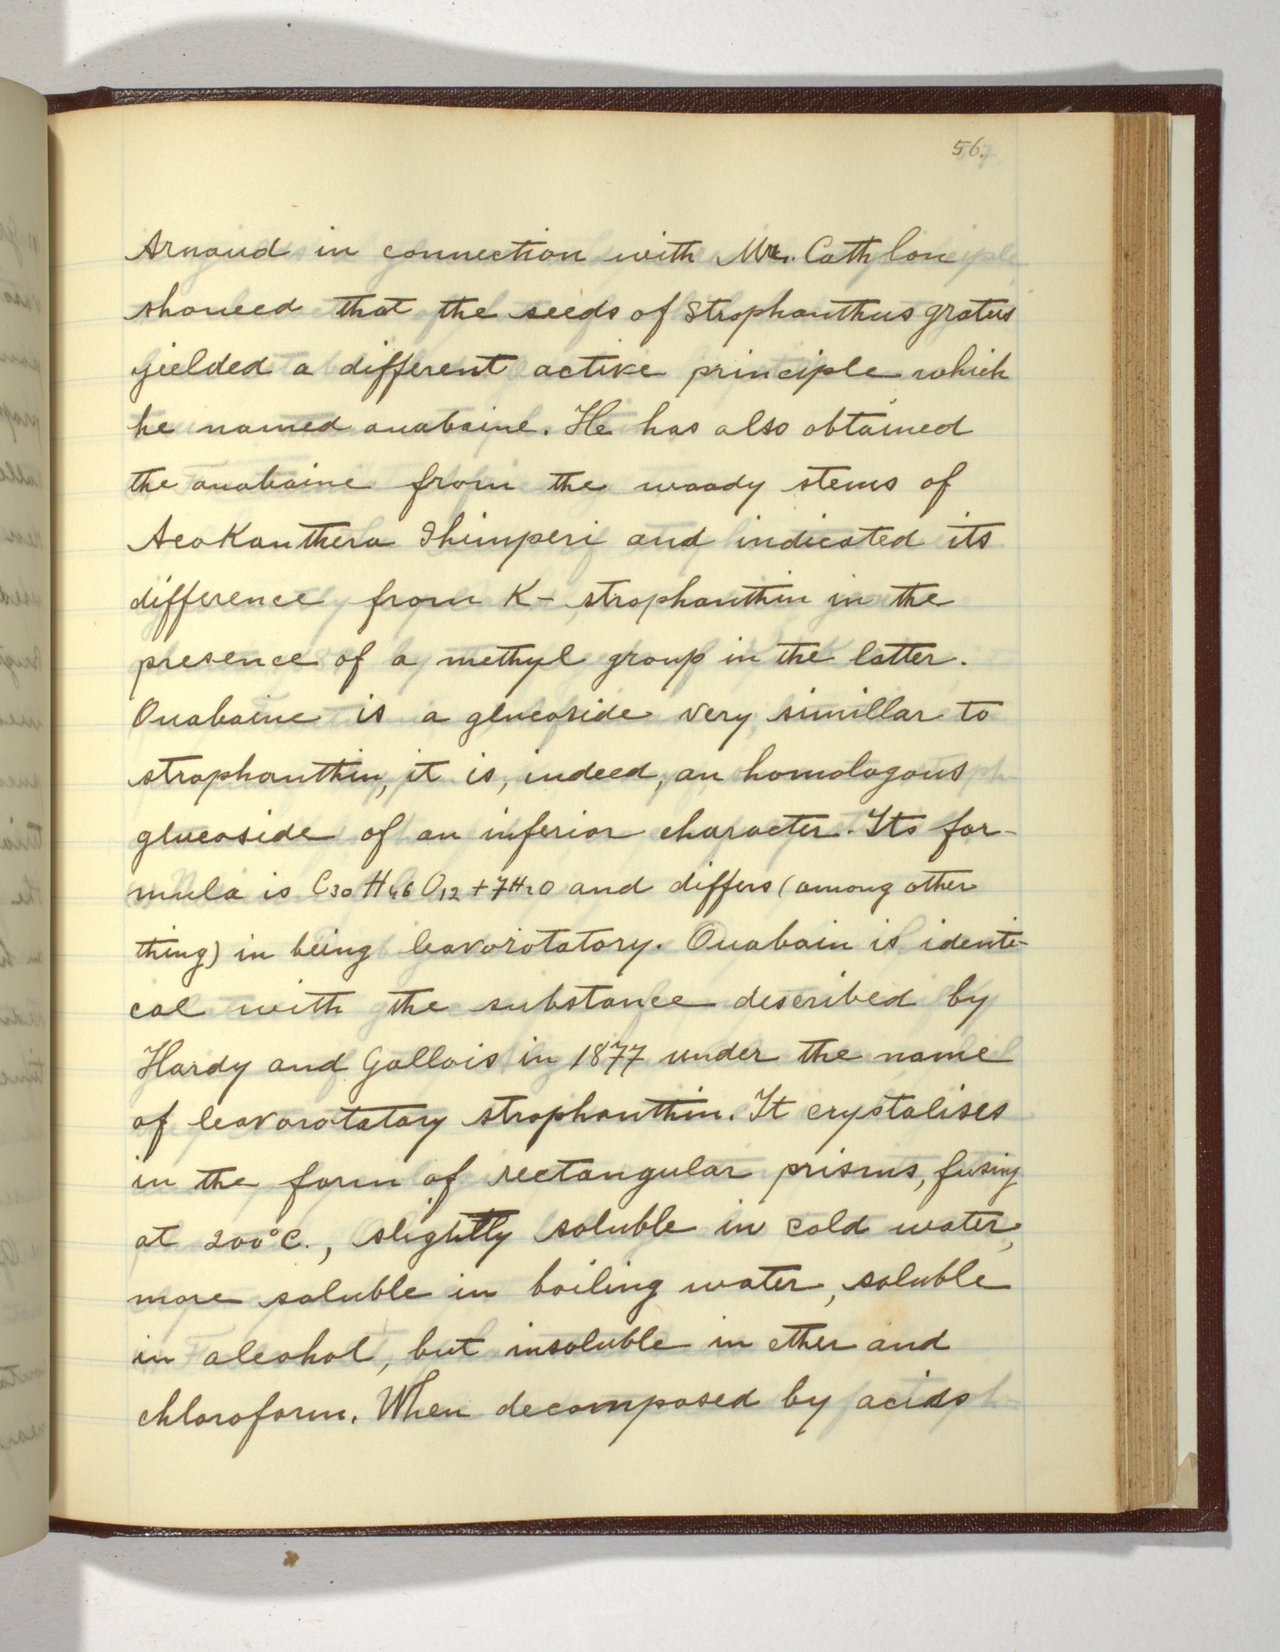 56.
Arnaud in connection with Mr. Cathlon
showed that the seeds of Strophanthus gratus
yielded a different active principle which
he named ouabaine. He has also obtained
the ouabaine from the woody stems of
Acokanthera Shimperi and indicated its
difference from K- strophanthin in the
presence of a methyl group in the latter.
Ouabaine is a glucoside very simillar to
strophanthin, it is, indeed, an homologous
glucoside of an inferior character. Its for-
mula is C30 H46 O12 + 7H2O and differs (among other
thing) in being leavorotatory. Ouabain is identi-
cal with the substance described by
Hardy and Gallois in 1877 under the name
of leavorotatory strophanthin. It crystalises
in the form of rectangular prisms, fusing
at 200°C., slightly soluble in cold water,
more soluble in boiling water, soluble
in alcohol, but insoluble in ether and
chloroform. When decomposed by acids